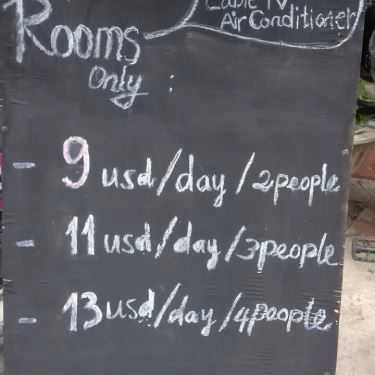 Cable TV
Rooms Air Conditioner
Only :
- 9 usd/day/2people
- 11 usd/day/3people
- 13 usd/day/4people